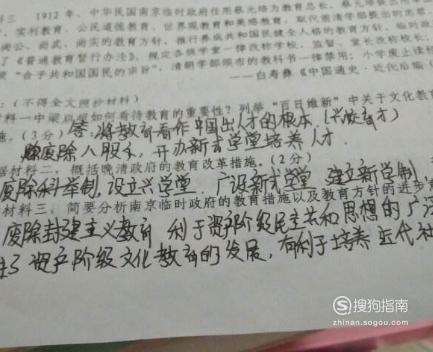 1912 年，中华民国南京临时政府任用蔡元培为教育总长，蔡元培提出
实利教育、公民道德教育、世界观教育和美感教育，取代前清学部提出的忠
尚公、尚武、尚实的教育方针，推行养成共和国民健全人格的教育方针。临时政
了《普通教育暂行办法》，规定各级学堂一律改称学校，监督、堂长改称校长，
"合乎共和国国民的宗旨"，清朝学部颁布的教科书一律禁用；小学废止读经
——白寿彝《中国通史·近代后编（
：（不得全文照抄材料）
料一中梁启超如何看待教育的重要性？列举"百日维新"中关于文化教育
施。（3 分）
答：将教育看作中国出人才的根本（兴学育才）
废除八股文，开办新式学堂培养人才．
据材料二，概括晚清政府的教育改革措施。（2 分）
废除科举制，设立兴学堂 广设新式学堂 建立新学制，
材料三，简要分析南京临时政府的教育措施以及教育方针的进步意
废除封建主义教育 利于资产阶级民主共和思想的广泛
进了资产阶级文化教育的发展，有利于培养近代社
搜狗指南
zhinan.sogou.com